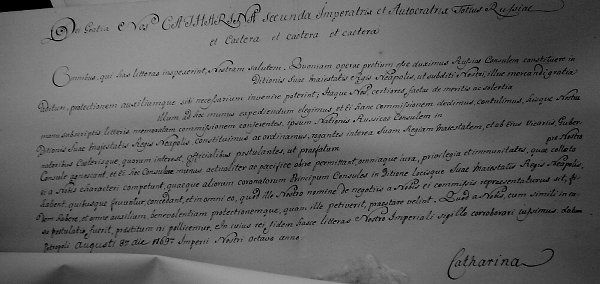 Dei Gratia e Nos CATHARINA Secunda Imperatrix et Autocratrix Totius Russiae
et Caetera et caetera et caetera
Omnibus, qui has litteras inspexerint, Nostram Salutem. Quoniam operae pretium esse duximus Russum Consulem constituere in
Ditionis Suae Maiestatis Regis Neapolis, ut subditi Nostri, illuc mercandi gratia
protectionem auxiliumque sibi necessarium invenire poterint; itaque Nos certiores facti de meritis ac solertia
illum ad hoc munus expediendum elegimus, et hanc commissionem dedimus, contulimus,
subscriptis litteris memoratam commissionem conferentes, ipsum Nationis Russicae Consulem in
Ditionis Suae Maiestatis Regis Neapolis constituimus ac ordinamus, rogantes interea Suam Regiam Maiestatem, et ab Eius Vicariis, Guber-
natoribus Caeterisque, quorum interest, Officialibus postulantes, ut praefatum
pro Nostro
Consule agnoscant, et hoc Consulae munus actualiter ac pacifice obire permittant, omniaque iura, privilegia et immunitates, quae
a Nobis characteri competunt, quaeque aliorum coronatorum Principum Consules in Ditione locisque Suae Maiestatis Regis Neapolis,
habent, quibusque fruuntur concedant, et in omni eo, quod ille Nostro nomine de negotiis a Nobis ei commissis representaturus sit,
Dem habere, et omne auxilium, benevolentiam protectionemque, quam ille petiverit, praestare velint. Quod a Nobis, cum simili in ca-
su postulatio fuerit, praestitum iri pollicemur. In cuius rei fidem hasce litteras Nostro Imperiali Sigillo corroborari iussimus. Datum
Petropoli Augusti die 1769. Imperii Nostri Octavo anno.
Catharina